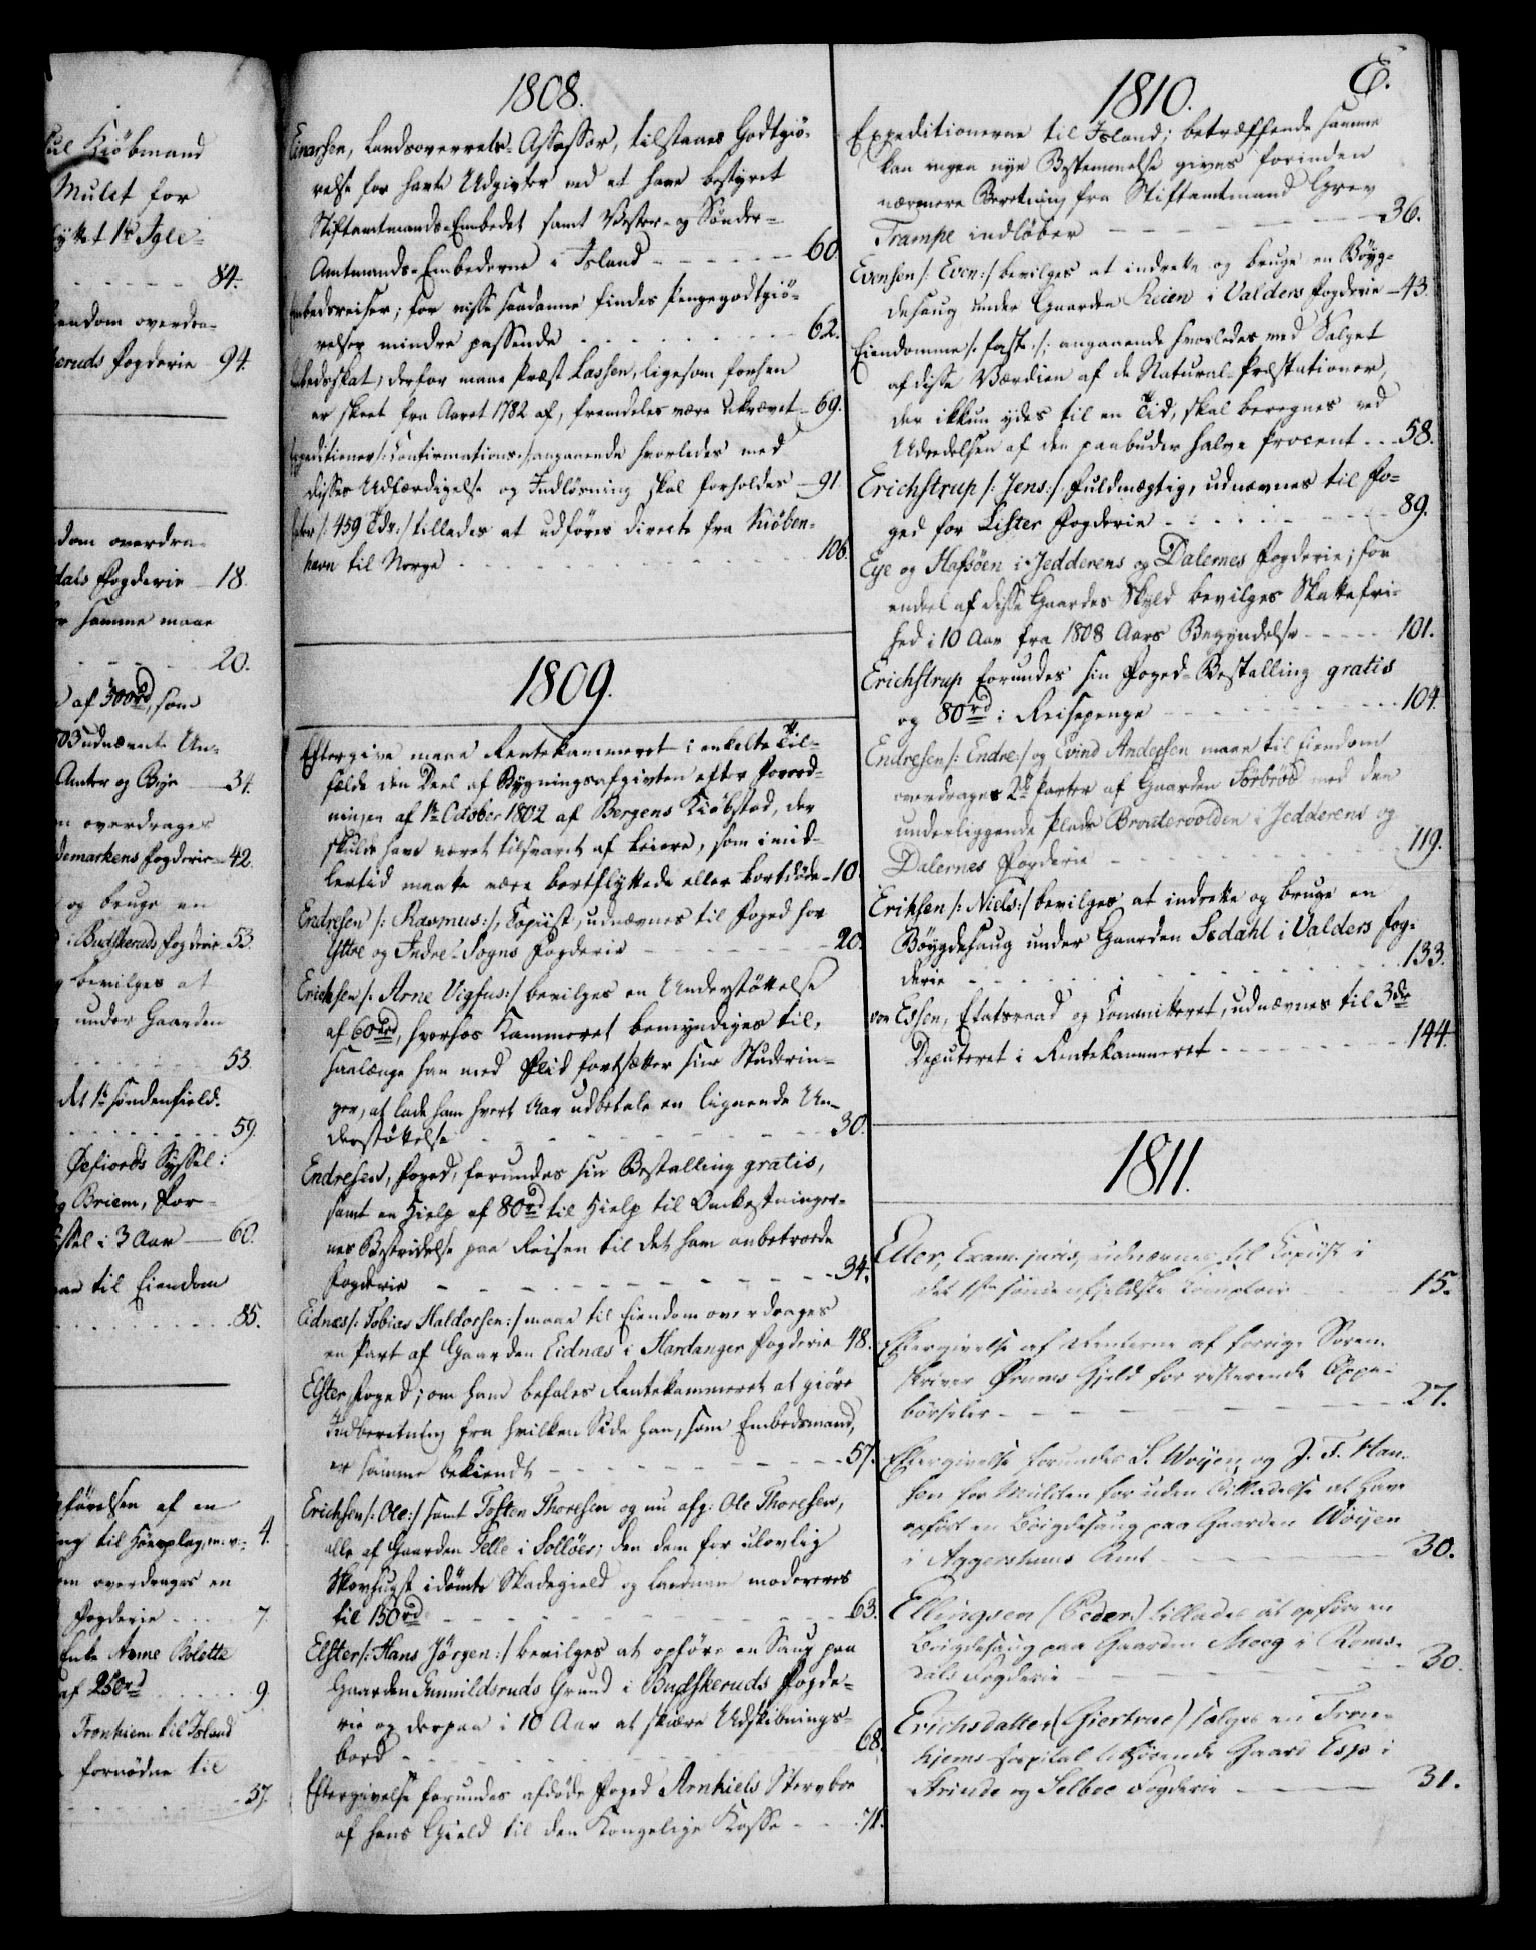 ul Kiöbmand
Mulct for
lyttet 1ste Igle-
84.
iendom overdra-
keruds Fogderie 94.
dom overdra-
dals Fogderie 18.
samme maae
20.
af 500rd, som
03 udnævnte Un-
Amter og Bye 34.
overdrages
demarkens Fogderie 42.
og bruge en
i Budskeruds Fogderie 53.
bevilges at
under Gaarden
53.
det 1ste söndenfield.
59.
Öefiords Syssel:
Briem, For-
ssel i 3 Aar 60.
til Eiendom
85.
förelsen af en
4.
overdrages en
Fogderie 7.
Enke Anne Bolette
af 250rd 9.
Tronhiem til Island
fornödne til
57.
1808.
Einarsen, Landsoverrets-Assessor, tilstaaes Godtgiö-
relse for havte Udgivter ved at have bestyret
Stiftamtmands-Embedet samt Vester- og Sönder-
Amtmands-Embederne i Island 60.
Embedsreiser; for visse saadanne findes Pengegodtgiö-
relser mindre passende 62.
Embedsskat, derfor maae Præst Lassen, ligesom forhen
er skeet fra Aaret 1782 af, fremdeles være ukrævet 69.
Expeditioner /: Confirmations :/ angaaende hvorledes med
disses Udfærdigelse og Indlösning skal forholdes 91.
/: 459 Tdr :/ tillades at udföres directe fra Kiöben-
havn til Norge 106.
1809.
Eftergive maae Rentekammeret i enkelte Til-
fælde den Deel af Bygningsafgivten efter Forord-
ningen af 1ste October 1802 af Bergens Kiöbstad, der
skulde have været tilsvaret af Leiere, som imid-
lertid maatte være bortflyttede eller bortdöde 10.
Endresen /: Rasmus :/, Copiist, udnævnes til Foged for
Yttre og Indre-Sogns Fogderie 20.
Erichsen /: Arne Vigfus :/ bevilges en Understöttelse
af 60rd, hvorhos Kammeret bemyndiges til,
saalænge han med Flid fortsætter sine Studerin-
ger, at lade ham hvert Aar udbetale en lignende Un-
derstöttelse 30.
Endresen, Foged, forundes sin Bestalling gratis,
samt en Hielp af 80rd til Hielp til Omkostninger-
nes Bestridelse paa Reisen til det ham anbetroede
Fogderie 34.
Eidnæs /: Tobias Haldorsen :/ maae til Eiendom overdrages
en Part af Gaarden Eidnæs i Hardanger Fogderie 48.
Elster, Foged; om ham befales Rentekammeret at giöre
Indberetning fra hvilken Side han, som Embedsmand,
er samme bekiendt 57.
Erichsen /: Ole :/ samt Tosten Thoresen og nu afg: Ole Thoresen,
alle af Gaarden Telle i Sollöer; den dem for ulovlig
Skovhugst idömte Skadegield og Landnam modereres
til 150rd 63.
Elster /: Hans Jörgen :/ bevilges at opföre en Saug paa
Gaarden Gunnildsruds Grund i Budskeruds Fogde-
rie og derpaa i 10 Aar at skiære Udskibnings-
bord 68.
Eftergivelse forundes afdöde Foged Arnkiels Sterbboe
af hans Gield til den Kongelige Kasse 71.
E.
1810.
Expeditionerne til Island; betræffende samme
kan ingen nye Bestemmelse gives forinden
nærmere Beretning fra Stiftamtmand Grev
Trampe indlöber 36.
Evensen /: Even :/ bevilges at indrette og bruge en Böyg-
desaug under Gaarden Reien i Valders Fogderie 43.
Eiendomme /: faste :/; angaaende hvorledes med Salget
af disse Værdien af de Natural-Præstationer,
der ikkun ydes til en Tid, skal beregnes ved
Udredelsen af den paabudne halve Procent 58.
Erichstrup /: Jens :/ Fuldmægtig, udnævnes til Fo-
ged for Lister Fogderie 89.
Eye og Hafsöen i Jedderens og Dalernes Fogderie; for
endeel af disse Gaardes Skyld bevilges Skattefri-
hed i 10 Aar fra 1808 Aars Begyndelse 101.
Erichstrup forundes sin Foged-Bestalling gratis
og 80rd i Reisepenge 104.
Endresen /: Endre :/ og Evind Andersen maae til Eiendom
overdrages 2de Parter af Gaarden Sörbröd med den
underliggende Plads Brautevolden i Jedderens og
Dalernes Fogderie 119.
Eriksen /: Niels :/ bevilges at indrette og bruge en
Böygdesaug under Gaarden Sedahl i Valders Fog-
derie 133.
von Essen, Etatsraad og Committeret, udnævnes til 3die
Deputeret i Rentekammeret 144.
1811.
Eller, Exam. juris, udnævnes til Copiist i
det 1ste söndenfieldske Comptoir 15.
Eftergivelse af Renterne af forrige Soren-
skriver Örums Gield for resterende Oppe-
börseler 27.
Eftergivelse forundes S. Woijen og J. T. Han-
sen for Mulcten for uden Tilladelse at have
opfört en Böigdesaug paa Gaarden Woijen
i Aggershuus Amt 30.
Ellingsen (Peder) tillades at opföre en
Böigdesaug paa Gaarden Moeg i Roms-
dals Fogderie 30.
Erichsdatter (Giertrue) sælges en Tron-
hiems Hospital tilhörende Gaard Esp i
Strinde og Selboe Fogderie 31.